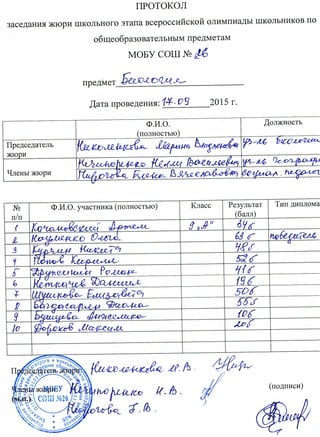 ПРОТОКОЛ
заседания жюри школьного этапа всероссийской олимпиады школьников по
общеобразовательным предметам
МОБУ СОШ № 26
предмет Биология
Дата проведения: 17.09 2015 г.
Ф.И.О. (полностью) Должность
Председатель жюри Николенкова Марина уч-ль биологии
Члены жюри Нечипоренко Нелли Васильевна уч-ль географии
Пирогова Елена Вячеславовна социал. педагог
№ п/п Ф.И.О. участника (полностью) Класс Результат (балл) Тип диплома
1 Кочановский Артем 9 „А" 34б
2 Науменко Ольга 63б победитель
3 Курчин Никита 48б
4 Попов Кирилл 52б
5 Роман 41б
6 Даниил 19б
7 Шушкова Елизавета 50б
8 Багдасарян Диана 55б
9 Бушуева Анжелика 10б
10 Дороков Максим 20б
Председатель жюри: Николенкова М.В.
Члены жюри: Нечипоренко Н.В. (подписи)
(м.п.) Пирогова Е.В.
МОБУ
СОШ №26